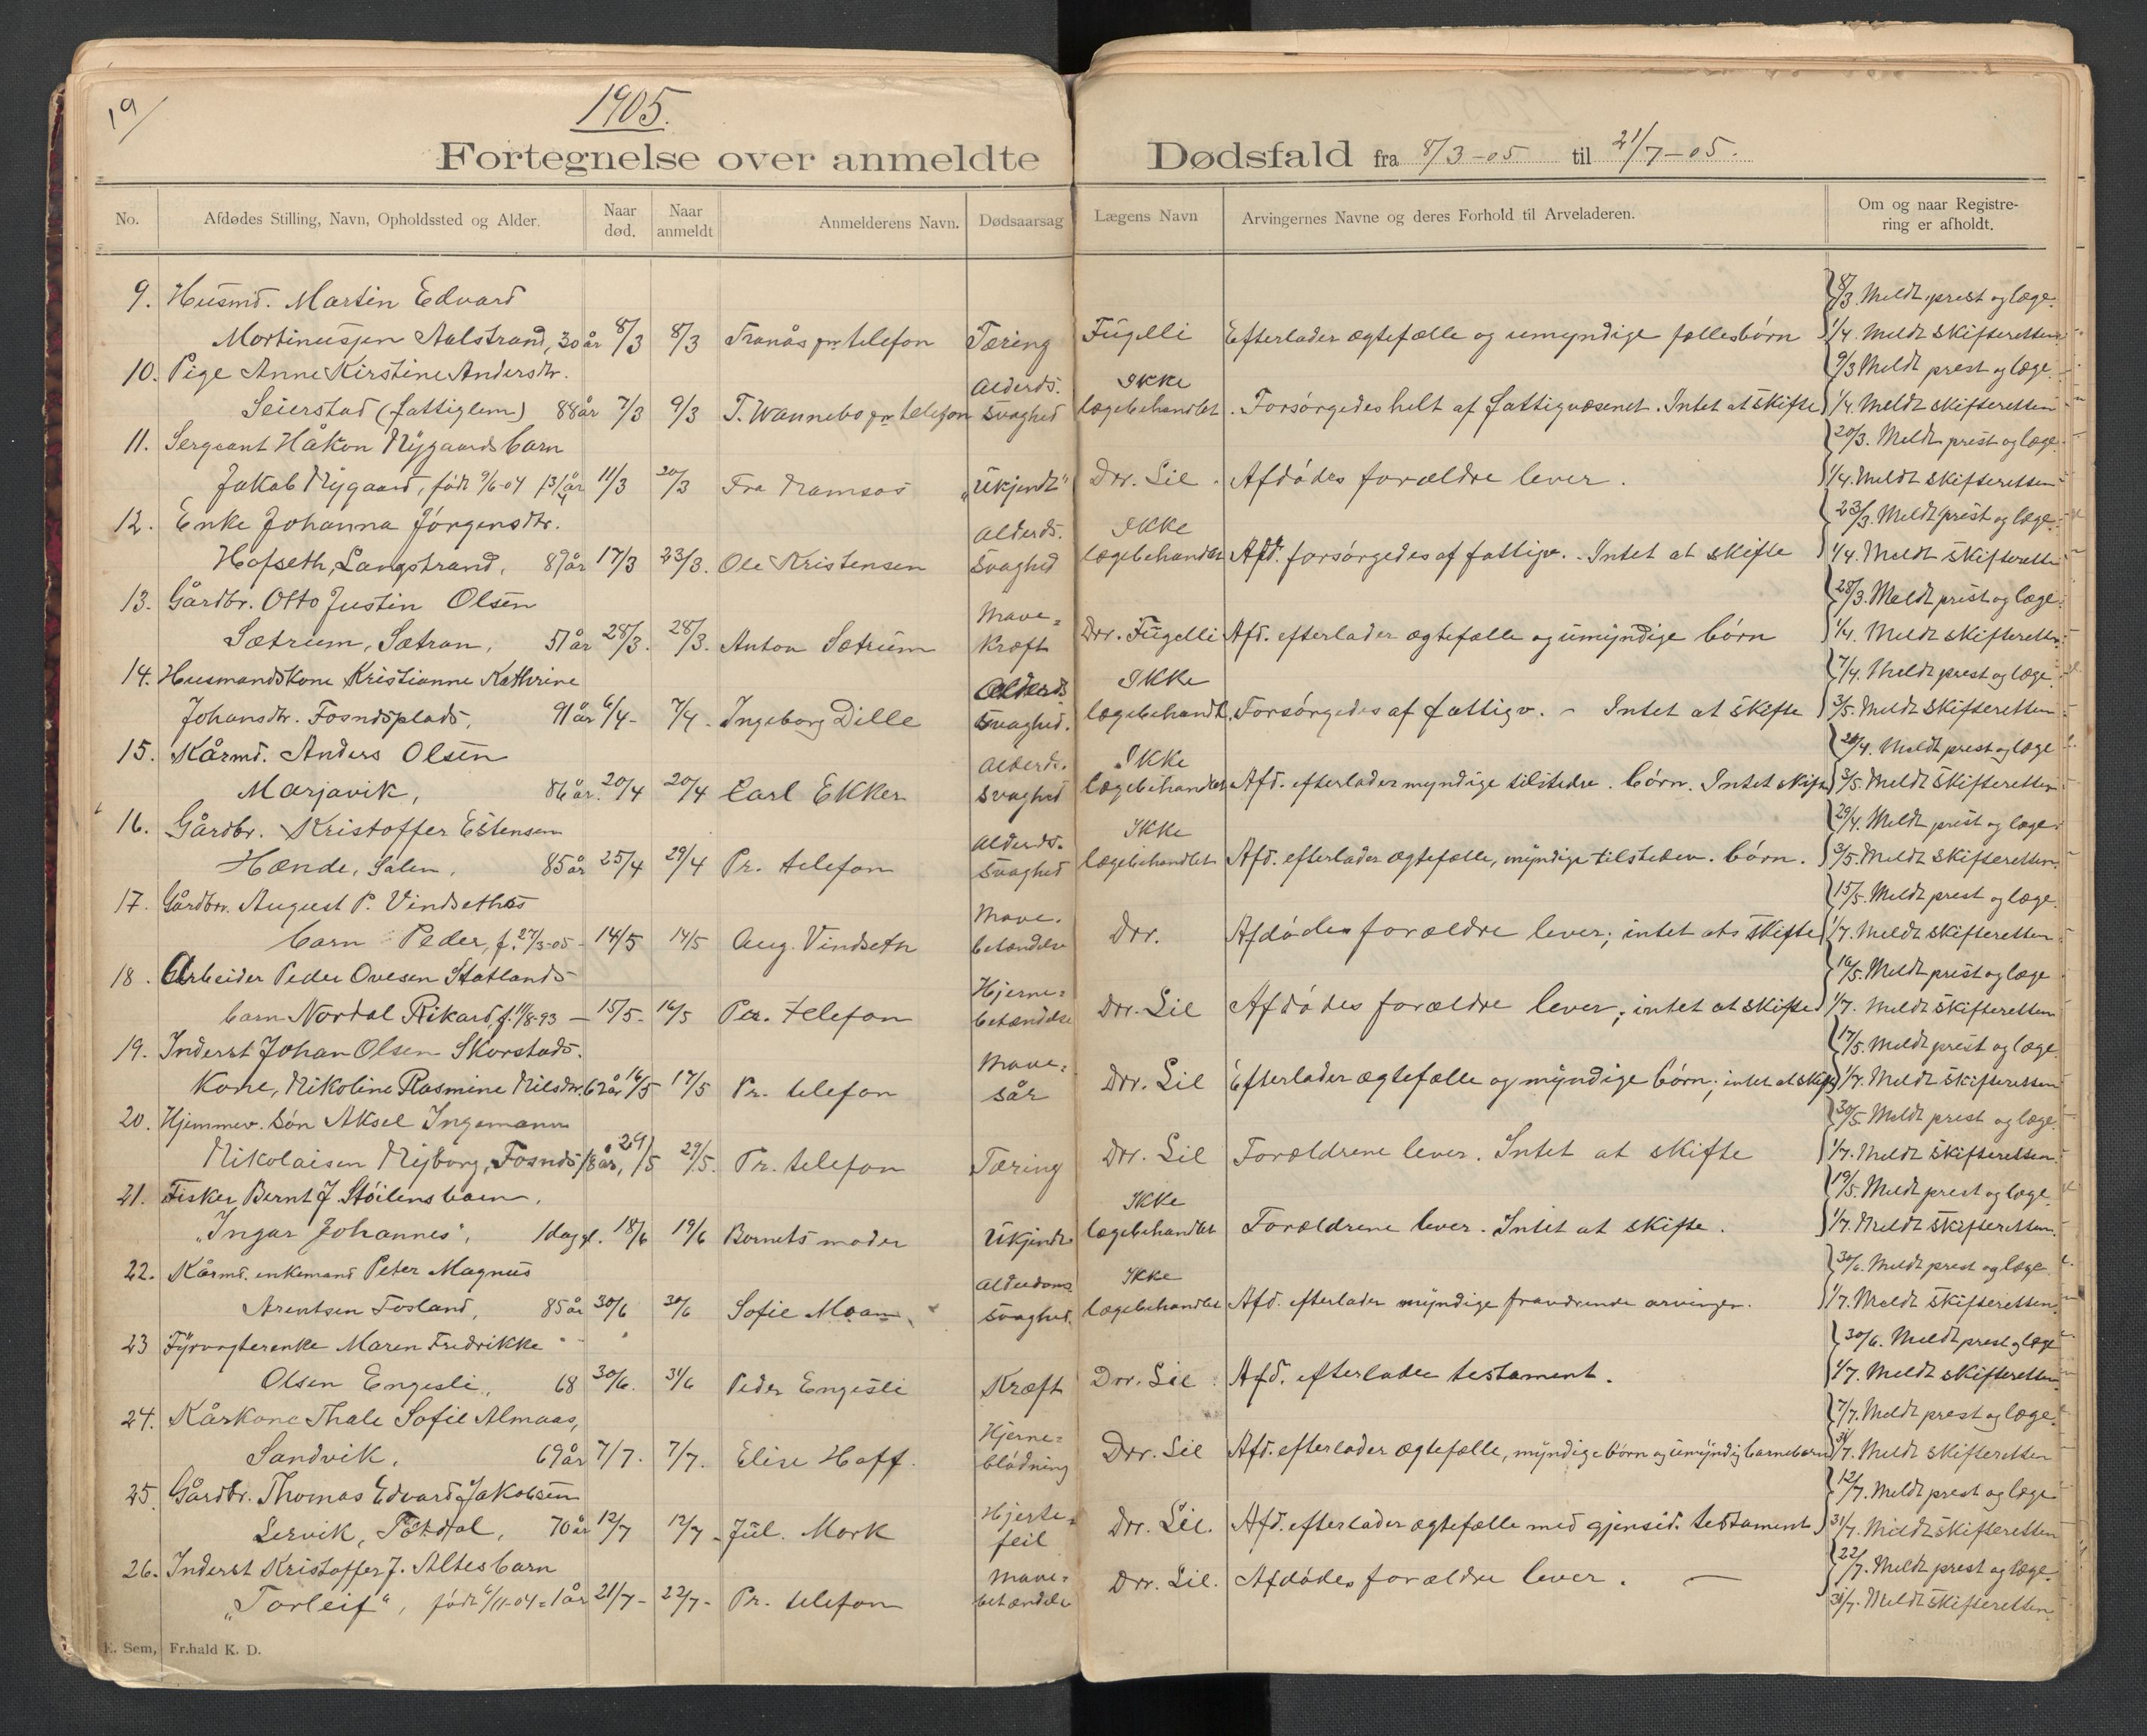 19/
1905.
Fortegnelse over anmeldte Dødsfald fra 8/3-05 til 21/7-05.
No. Afdødes Stilling, Navn, Opholdssted og Alder. Naar død. Naar anmeldt Anmelderens Navn. Dødsaarsag Lægens Navn Arvingernes Navne og deres Forhold til Arveladeren. Om og naar Registrering er afholdt.
9. Husmd. Martin Edvard 8/3. Meldt prest og læge.
Mortinussen Aalstrand, 30 år 8/3 8/3 Tranås pr telefon Tæring Fugelli Efterlader ægtefælle og umyndige fællesbörn 1/4. Meldt skifteretten
10. Pige Anne Kirstine Andersdtr. Alderds. Ikke 9/3 Meldt prest og læge.
Seierstad (fattiglem) 88 år 7/3 9/3 T. Wannebo pr telefon svaghed lægebehandlet. Forsörgedes helt af fattigvæsenet. Intet at skifte 1/4. Meldt skifteretten
11. Sergeant Håkon Nygaards barn 20/3. Meldt prest og læge
Jakob Nygaard, födt 9/6-04 11/3 20/3 Fra Namsos „Ukjendt" Dr. Lie. Afdödes forældre lever. 1/4. Meldt skifteretten
12. Enke Johanna Jörgensdtr. Alderds. Ikke 23/3. Meldt prest og læge.
Hofseth, Langstrand, 87 år 17/3 23/3. Ole Kristensen svaghed lægebehandlet Afd. forsörgedes af fattigv. - Intet at skifte 1/4. Meldt skifteretten
13. Gårdbr. Otto Justin Olsen Mave= 28/3. Meldt prest og læge.
Sætrum, Sætran, 51 år 28/3. 28/3. Anton Sætrum Kræft Dr. Fugelli Afd. efterlader ægtefælle og umyndige börn 1/4. Meldt skifteretten.
14. Husmandskone Kristianne Kathrine Alderds Ikke 7/4. Meldt prest og læge.
Johansdtr. Fosndsplads, 91 år 6/4- 7/4. Ingeborg Dille svaghed. lægebehandl. Forsörgedes af fattigv. - Intet at skifte 3/5. Meldt skifteretten
15. Kårmd. Anders Olsen Alderds. Ikke 20/4. Meldt prest og læge
Marjavik, 86 år. 20/4 20/4 Carl Ekker svaghed lægebehandlet Afd. efterlader myndige tilstedre. börn. Intet skifte 3/5. Meldt skifteretten
16. Gårdbr. Kristoffer Estensen Alderds. Ikke 29/4. Meldt prest og læge.
Hænde, Salen, 85 år 25/4 29/4 Pr. telefon svaghed lægebehandlet Afd. efterlader ægtefælle, myndige tilstedev. börn. 3/5. Meldt skifteretten.
17. Gårdbr. August P. Vindseths Mave. 15/5. Meldt prest og læge.
barn Peder, f. 27/3-05- 14/5 14/5 Aug. Vindseth betændelse Dr. Afdödes forældre lever; intet at skifte 1/7. Meldt skifteretten
18. Arbeider Peder Ovesen Statlands Hjerne= 16/5. Meldt prest og læge
barn Nordal Rikard, f. 11/8-93 - 15/5. 16/5 Pr. telefon betændelse Dr. Lie Afdödes forældre lever; intet at skifte 1/7. Meldt skifteretten
19. Inderst Johan Olsen Skorstads. Mave= 17/5. Meldt prest og læge.
kone, Nikoline Rasmine Nilsdtr. 62 år 16/5 17/5 Pr. telefon sår Dr. Lie Efterlader ægtefælle og myndige börn; intet at skifte 1/7. Meldt skifteretten
20. Hjemmev. sön Aksel Ingemann 30/5. Meldt prest og læge.
Nikolaisen Nyborg, Fosnds 18 år, 29/5 29/5. Pr. telefon Tæring Dr. Lie Forældrene lever. Intet at skifte 1/7. Meldt skifteretten.
21. Fisker Bernt J. Stöilens barn. Ikke 19/5. Meldt prest og læge.
„Ingar Johannes", 1 dag gl. 18/6 19/6 Bernets moder Ukjendt lægebehandlet Forældrene lever. Intet at skifte. 1/7. Meldt skifteretten.
22. Kårmd. enkemand Peter Magnus Alderdoms Ikke 30/6. Meldt prest og læge.
Arentsen Fosland, 85 år 30/6 30/6 Sofie Moam svaghed. lægebehandlet Afd. efterlader myndige fraværende arvinger. 1/7. Meldt skifteretten.
23 Fyrvogterenke Maren Fredrikke 30/6. Meldt prest og læge
Olsen Engesli, 68 30/6. 31/6 Peder Engesli Kræft Dr. Lie Afd. efterlader testament. 1/7. Meldt skifteretten.
24. Kårkone Thale Sofie Almaas, Hjerne= 7/7. Meldt prest og læge.
Sandvik. 69 år 7/7. 7/7. Elise Hoff. blödning Dr. Lie Afd. efterlader ægtefælle, myndige börn og umyndig barnebarn 31/7. Meldt skifteretten
25. Gårdbr. Thomas Edvard Jakobsen Hjerte= 12/7. Meldt prest og læge
Lervik, Tötdal, 70 år 12/7 12/7. Jul. Mork feil Dr. Lie. Afd. efterlader ægtefælle med gjensid. testament 31/7. Meldt skifteretten
26. Inderst Kristoffer J. Altes barn Mave= 22/7. Meldt prest og læge.
„Torleif", födt 6/11-04 = 1 år 21/7- 22/7- Pr. telefon betændelse Dr. Lie. Afdödes forældre lever. - 31/7. Meldt skifteretten.
E. Sem, Fr.hald K. D.